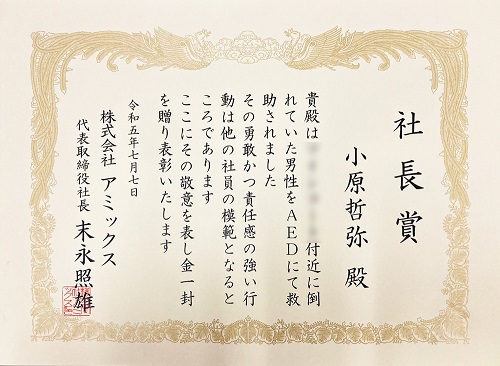 社長賞
小原哲弥 殿
貴殿は 付近に倒
れていた男性をAEDにて救
助されました
その勇敢かつ責任感の強い行
動は他の社員の模範となると
ころであります
ここにその敬意を表し金一封
を贈り表彰いたします
令和五年七月七日
株式会社 アミックス
代表取締役社長 末永照雄